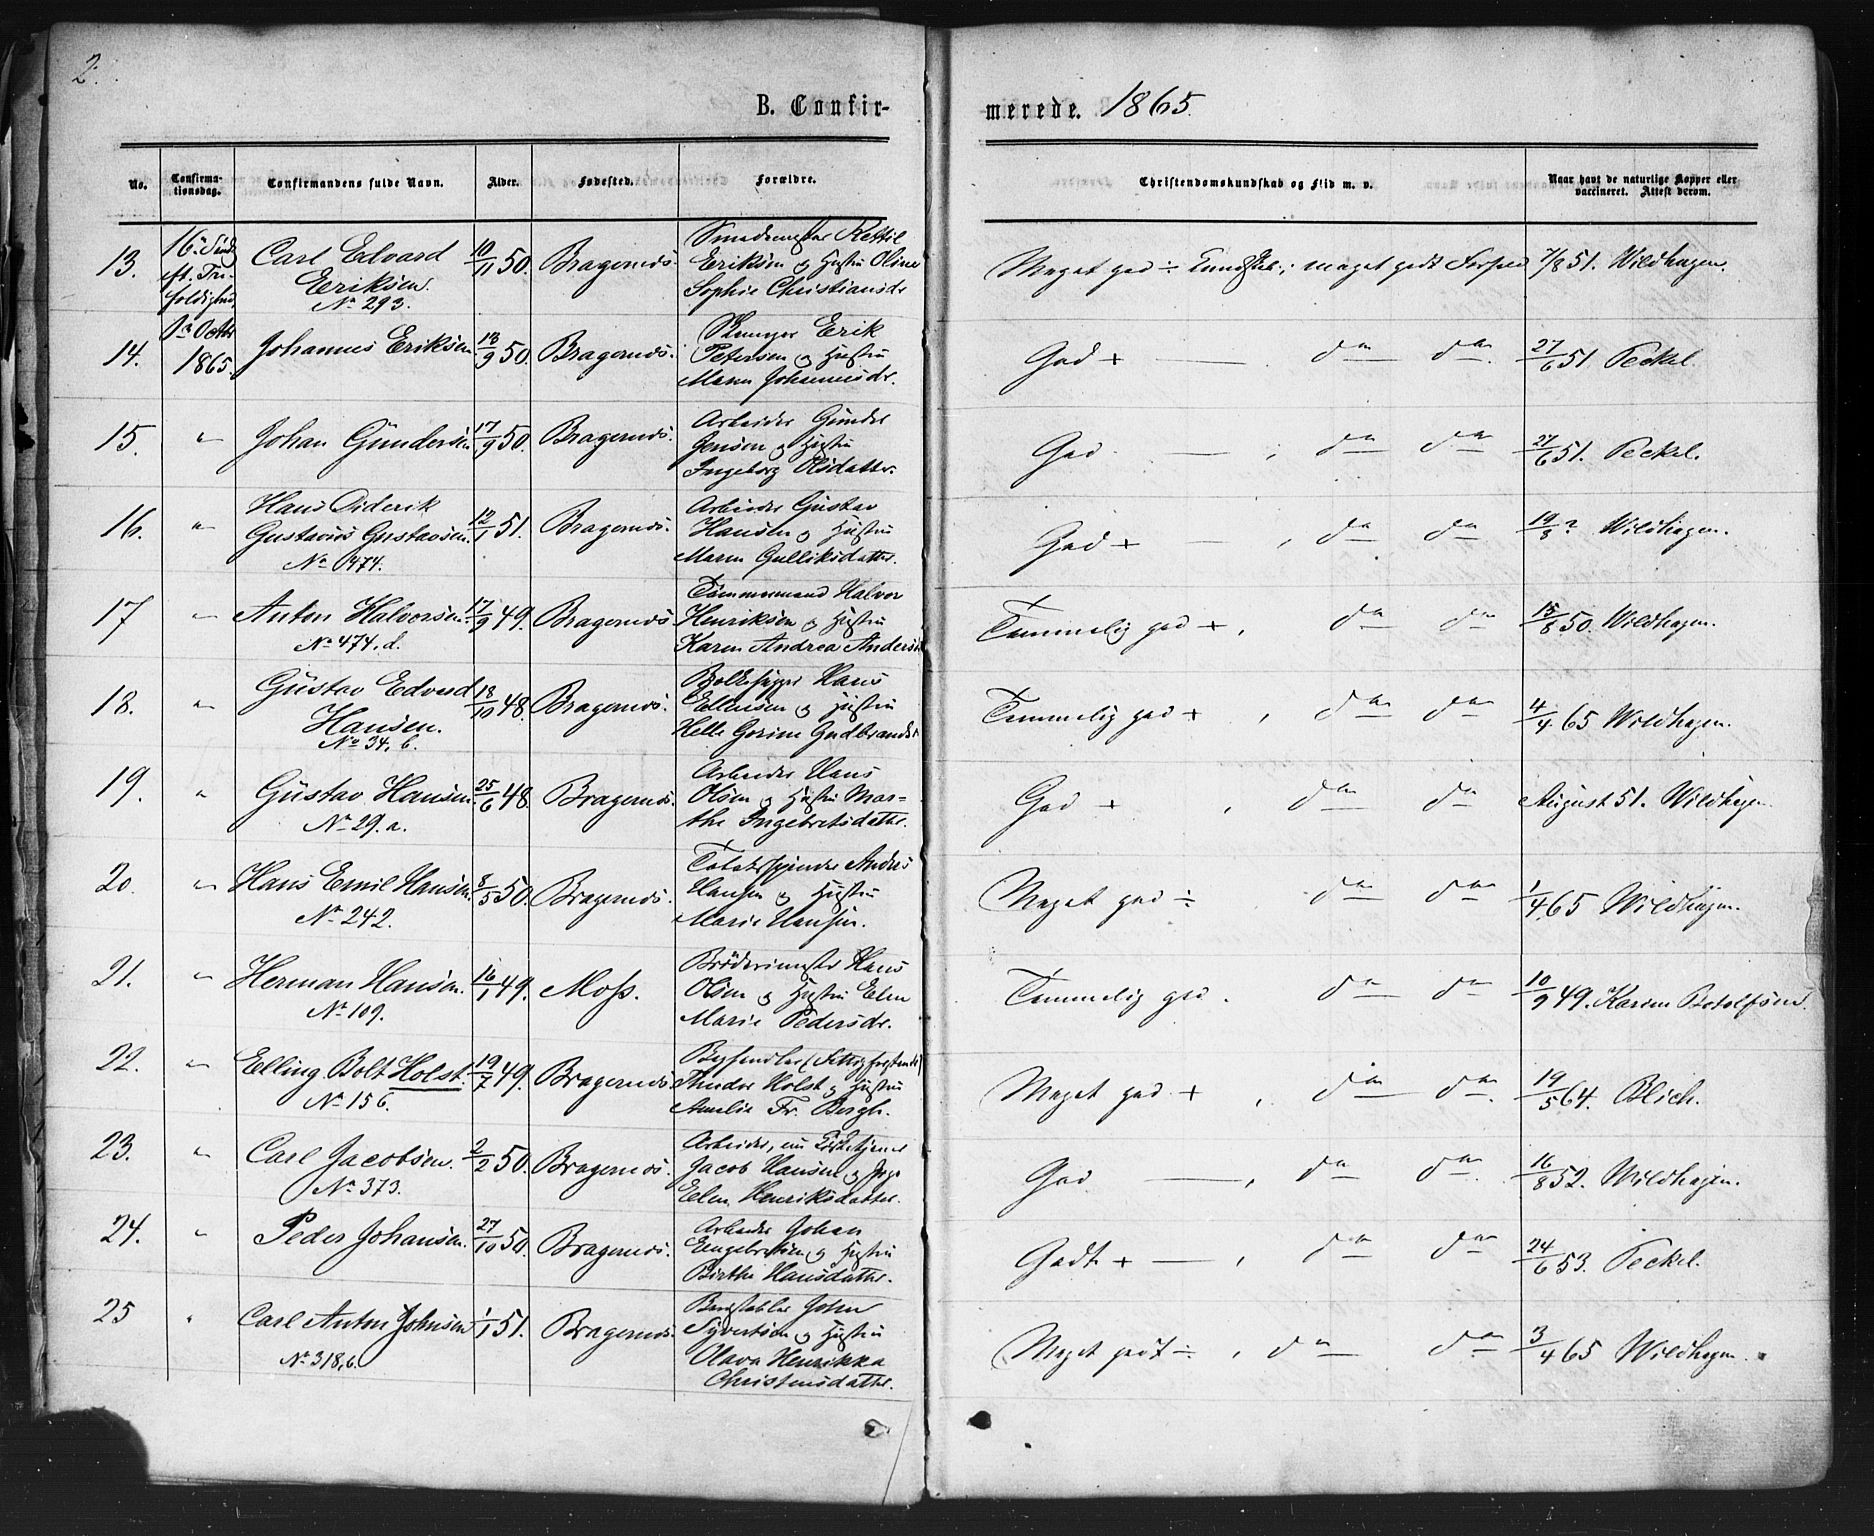 2.
B. Confir-
merede. 1865.
No.
Confirma-
tionsdag.
Confirmandens fulde Navn.
Alder.
Fødested.
Forældre.
Christendomskundskab og Flid m. v.
Naar havt de naturlige Kopper eller
vaccineret. Attest derom.
13. 16. Sønd. eft. Tre- foldighed Carl Edvard Eriksen. No 293. 10/11 50. Bragernæs. Smedemester Kettil Eriksen og Hustru Oline Sophie Christiansdr Meget god ÷ Kundskab; meget godt Forhold 7/8 51. Wildhagen.
14. 1ste Octbr 1865. Johannes Eriksen 13/9 50. Bragernæs. Erik Petersen og Hustru Maren Johannesdr. God + — do do. 27/6 51 Peckel.
15. " Johan Gündersen 17/9 50. Bragernæs. Arbeider Gunder Jensen og Hustru Ingeborg Olsdatter. God — ; do do 27/6 51. Peckel.
16. " Hans Diderik Gustavus Gustavsen. No 474. 12/1 51. Bragernæs. Arbeider Gustav Hansen og Hustru Maren Gulliksdatter. God + — , do do 19/8 ? Wildhagen.
17 " Anton Halvorsen. No 474. d. 17/9 49. Bragernæs. Tømmermand Halvor Henriksen og Hustru Karen Andrea Andersd Temmelig god + , do do 15/8 50. Wildhagen.
18. " Güstav Edvard Hansen. No 34, b. 18/10 48. Bragernæs. Hans Ellensen og Hustru Helle Gorine Gudbrandsd Temmelig god + , do do 4/4 65 Wildhagen.
19. " Güstav Hansen. No 29. a. 25/6 48. Bragernæs. Arbeider Hans Olsen og Hustru Mar= the Ingebretsdatter. God + , do do August 51. Wildhagen
20. " Hans Emil Hansen. No 242. 8/5 50. Bragernæs. Tobakspinder Andreas Hansen og Hustru Marie Hansen. Meget god ÷ do do 1/4 65 Wildhagen.
21. " Herman Hansen. No 109. 16/1 49. Moss. Hans Olsen og Hustru Elen Marie Pedersdr. Temmelig god. do do 10/9 49. Karen Botolfsen.
22. " Elling Bolt Holst. No 156. 19/7 49. Bragernæs Theodor Holst og Hustru Amelie Fr. Bergh. Meget god + , do do. 19/5 64. Blich.
23. " Carl Jacobsen. No 373. 2/2 50. Bragernæs. Arbeider, nu Jacob Hansen og Elen Henriksdatter. God — , do do. 16/8 52. Wildhagen.
24. " Peder Johansen. 27/10 50. Bragernæs. Arbeider Johan Engebretsen og Hustru Birthe Hansdatter. Godt + — , do do 24/6 53. Peckel.
25 " Carl Anton Johnsen No 318, b. 1/1 51. Bragernæs. John Syvertsen og Hustru Olava Henrikka Christensdatter. Meget godt ÷ , do do 3/4 65 Wildhagen.